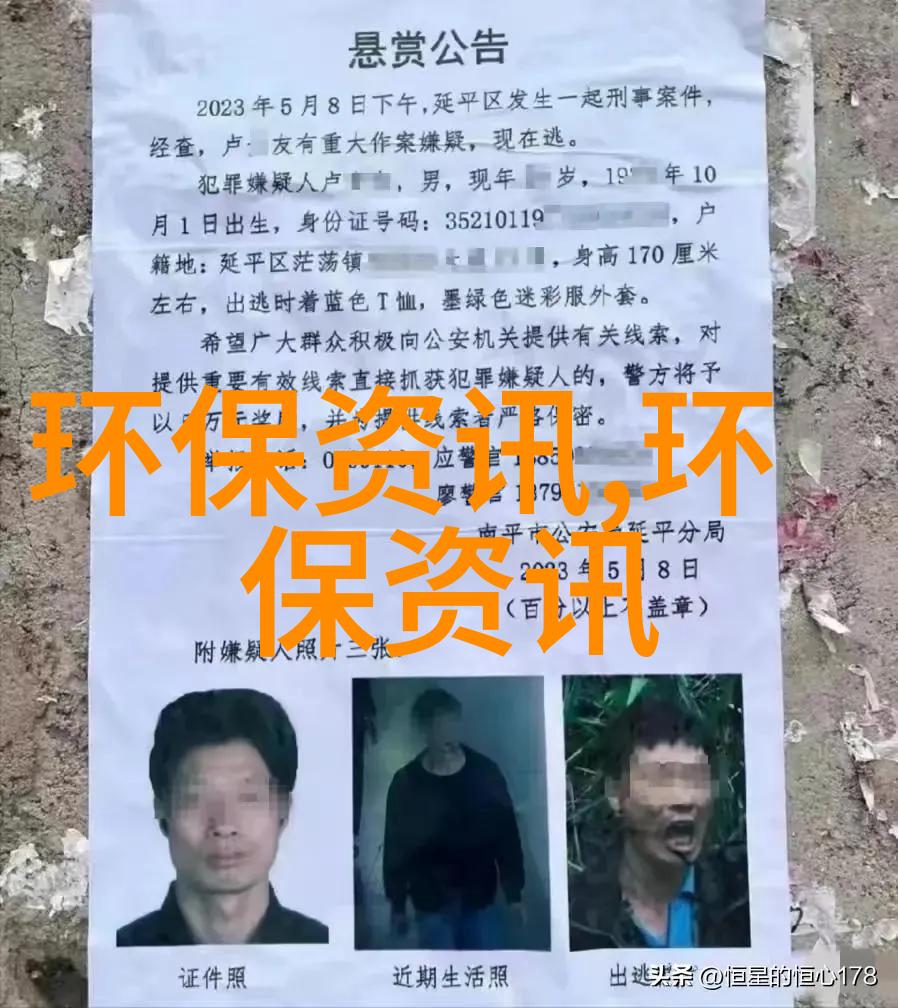 悬赏公告
2023年5月8日下午,延平区发生一起刑事案件,
经查,卢 友有重大作案嫌疑,现在逃。
犯罪嫌疑人卢 ,男,现年 岁,19 年10
月1日出生,身份证号码:35210119 ,户
籍地:延平区茫荡镇 ,身高170厘米
左右,出逃时着蓝色T恤,墨绿色迷彩服外套。
希望广大群众积极向公安机关提供有关线索,对
提供重要有效线索直接抓获犯罪嫌疑人的,警方将予
以 万元奖 ,并 提供线索者严格保密。
环保资讯,环
保资讯
应警官
廖警官
南平市公安 延平分局
2023年5月8日
(百份以上不盖章)
附嫌疑人照片三张
证件照
近期生活照
出逃
头条 @恒星的恒心178